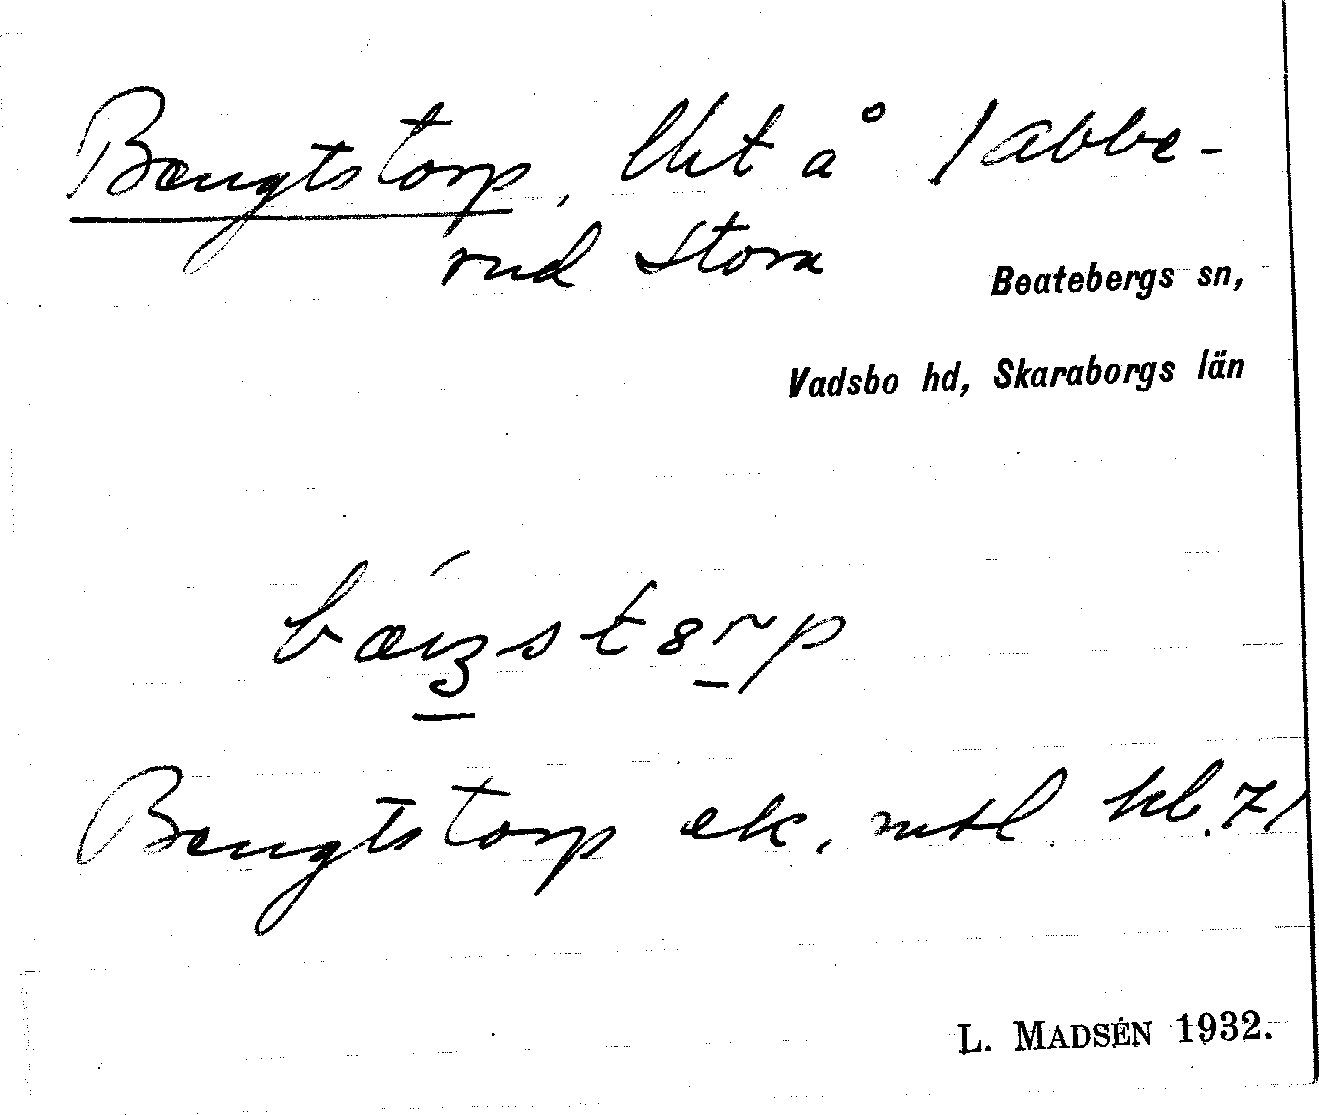 Bengtstorp, lht å Jabbe-
rud Stora
Beatebergs sn,
Vadsbo hd, Skaraborgs län
Bengtstorp ek. mtl kb. 71
L. MADSÉN 1932.